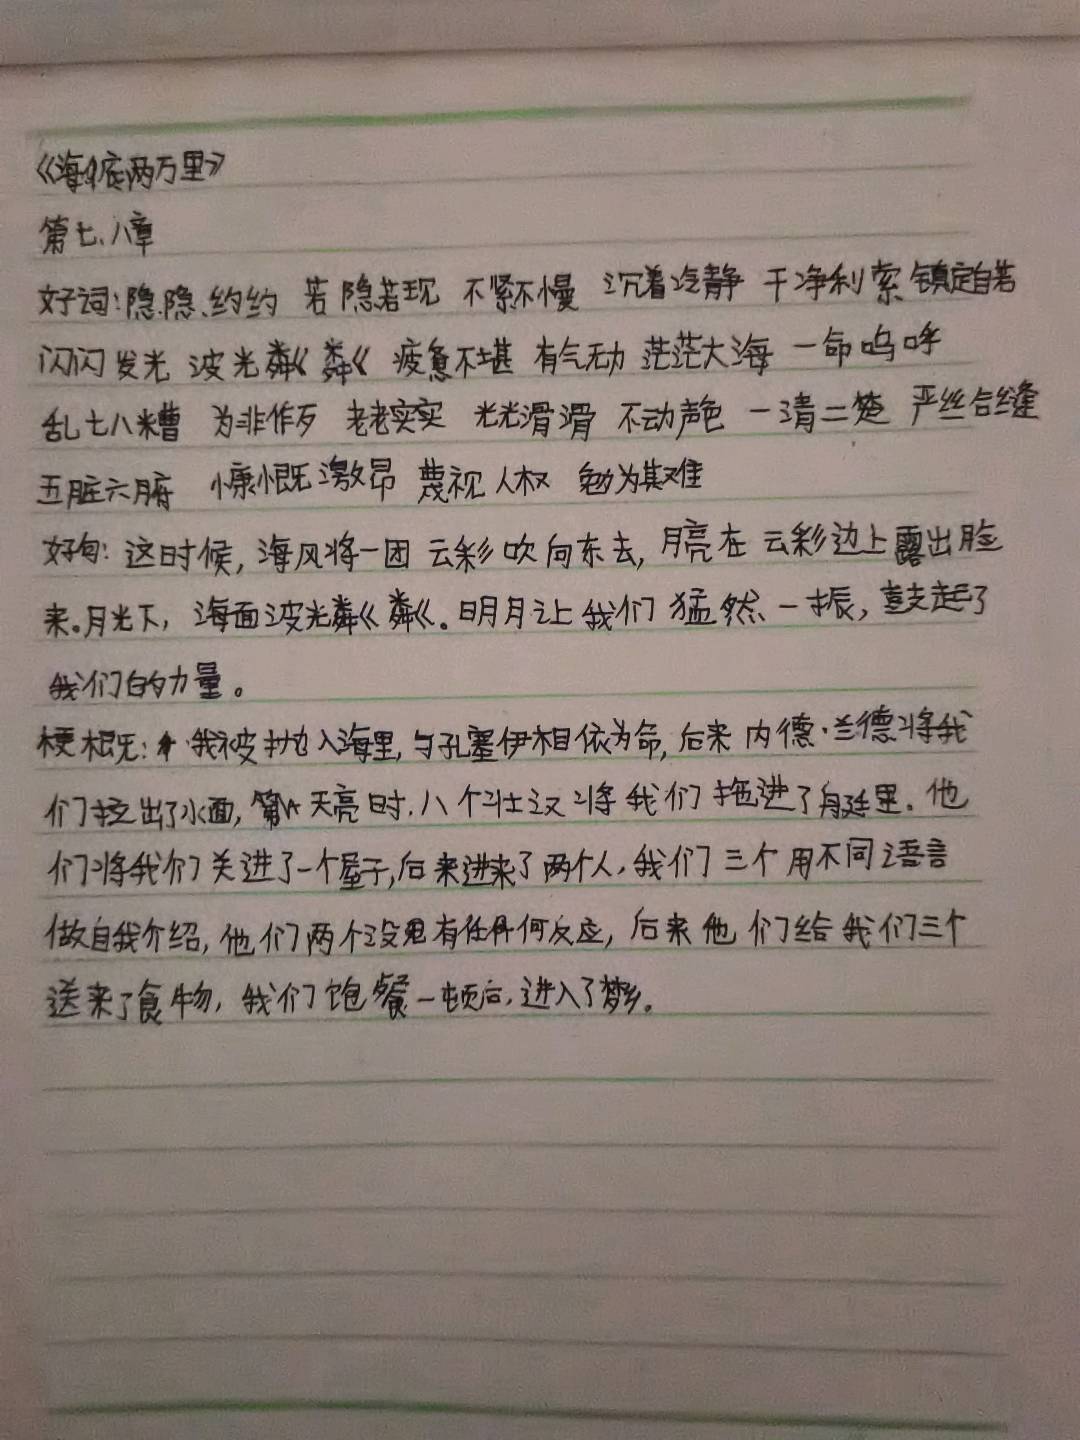 《海底两万里》
第七、八章
好词:隐隐约约 若隐若现 不紧不慢 沉着冷静 干净利索 镇定自若
闪闪发光 波光粼粼 疲惫不堪 有气无力 茫茫大海 一命呜呼
乱七八糟 为非作歹 老老实实 光光滑滑 不动声色 一清二楚 严丝合缝
五脏六腑 慷慨激昂 蔑视人权 勉为其难
好句:这时候,海风将一团云彩吹向东去,月亮在云彩边上露出脸
来。月光下,海面波光粼粼。明月让我们猛然一振,鼓起了
我们的力量。
梗概:我被抛入海里,与孔塞伊相依为命,后来内德·兰德将我
们拉出了水面,天亮时,八个壮汉将我们拖进了舟廷里。他
们将我们关进了一个屋子,后来进来了两个人,我们三个用不同语言
做自我介绍,他们两个没有任何反应,后来他们给我们三个
送来了食物,我们饱餐一顿后,进入了梦乡。